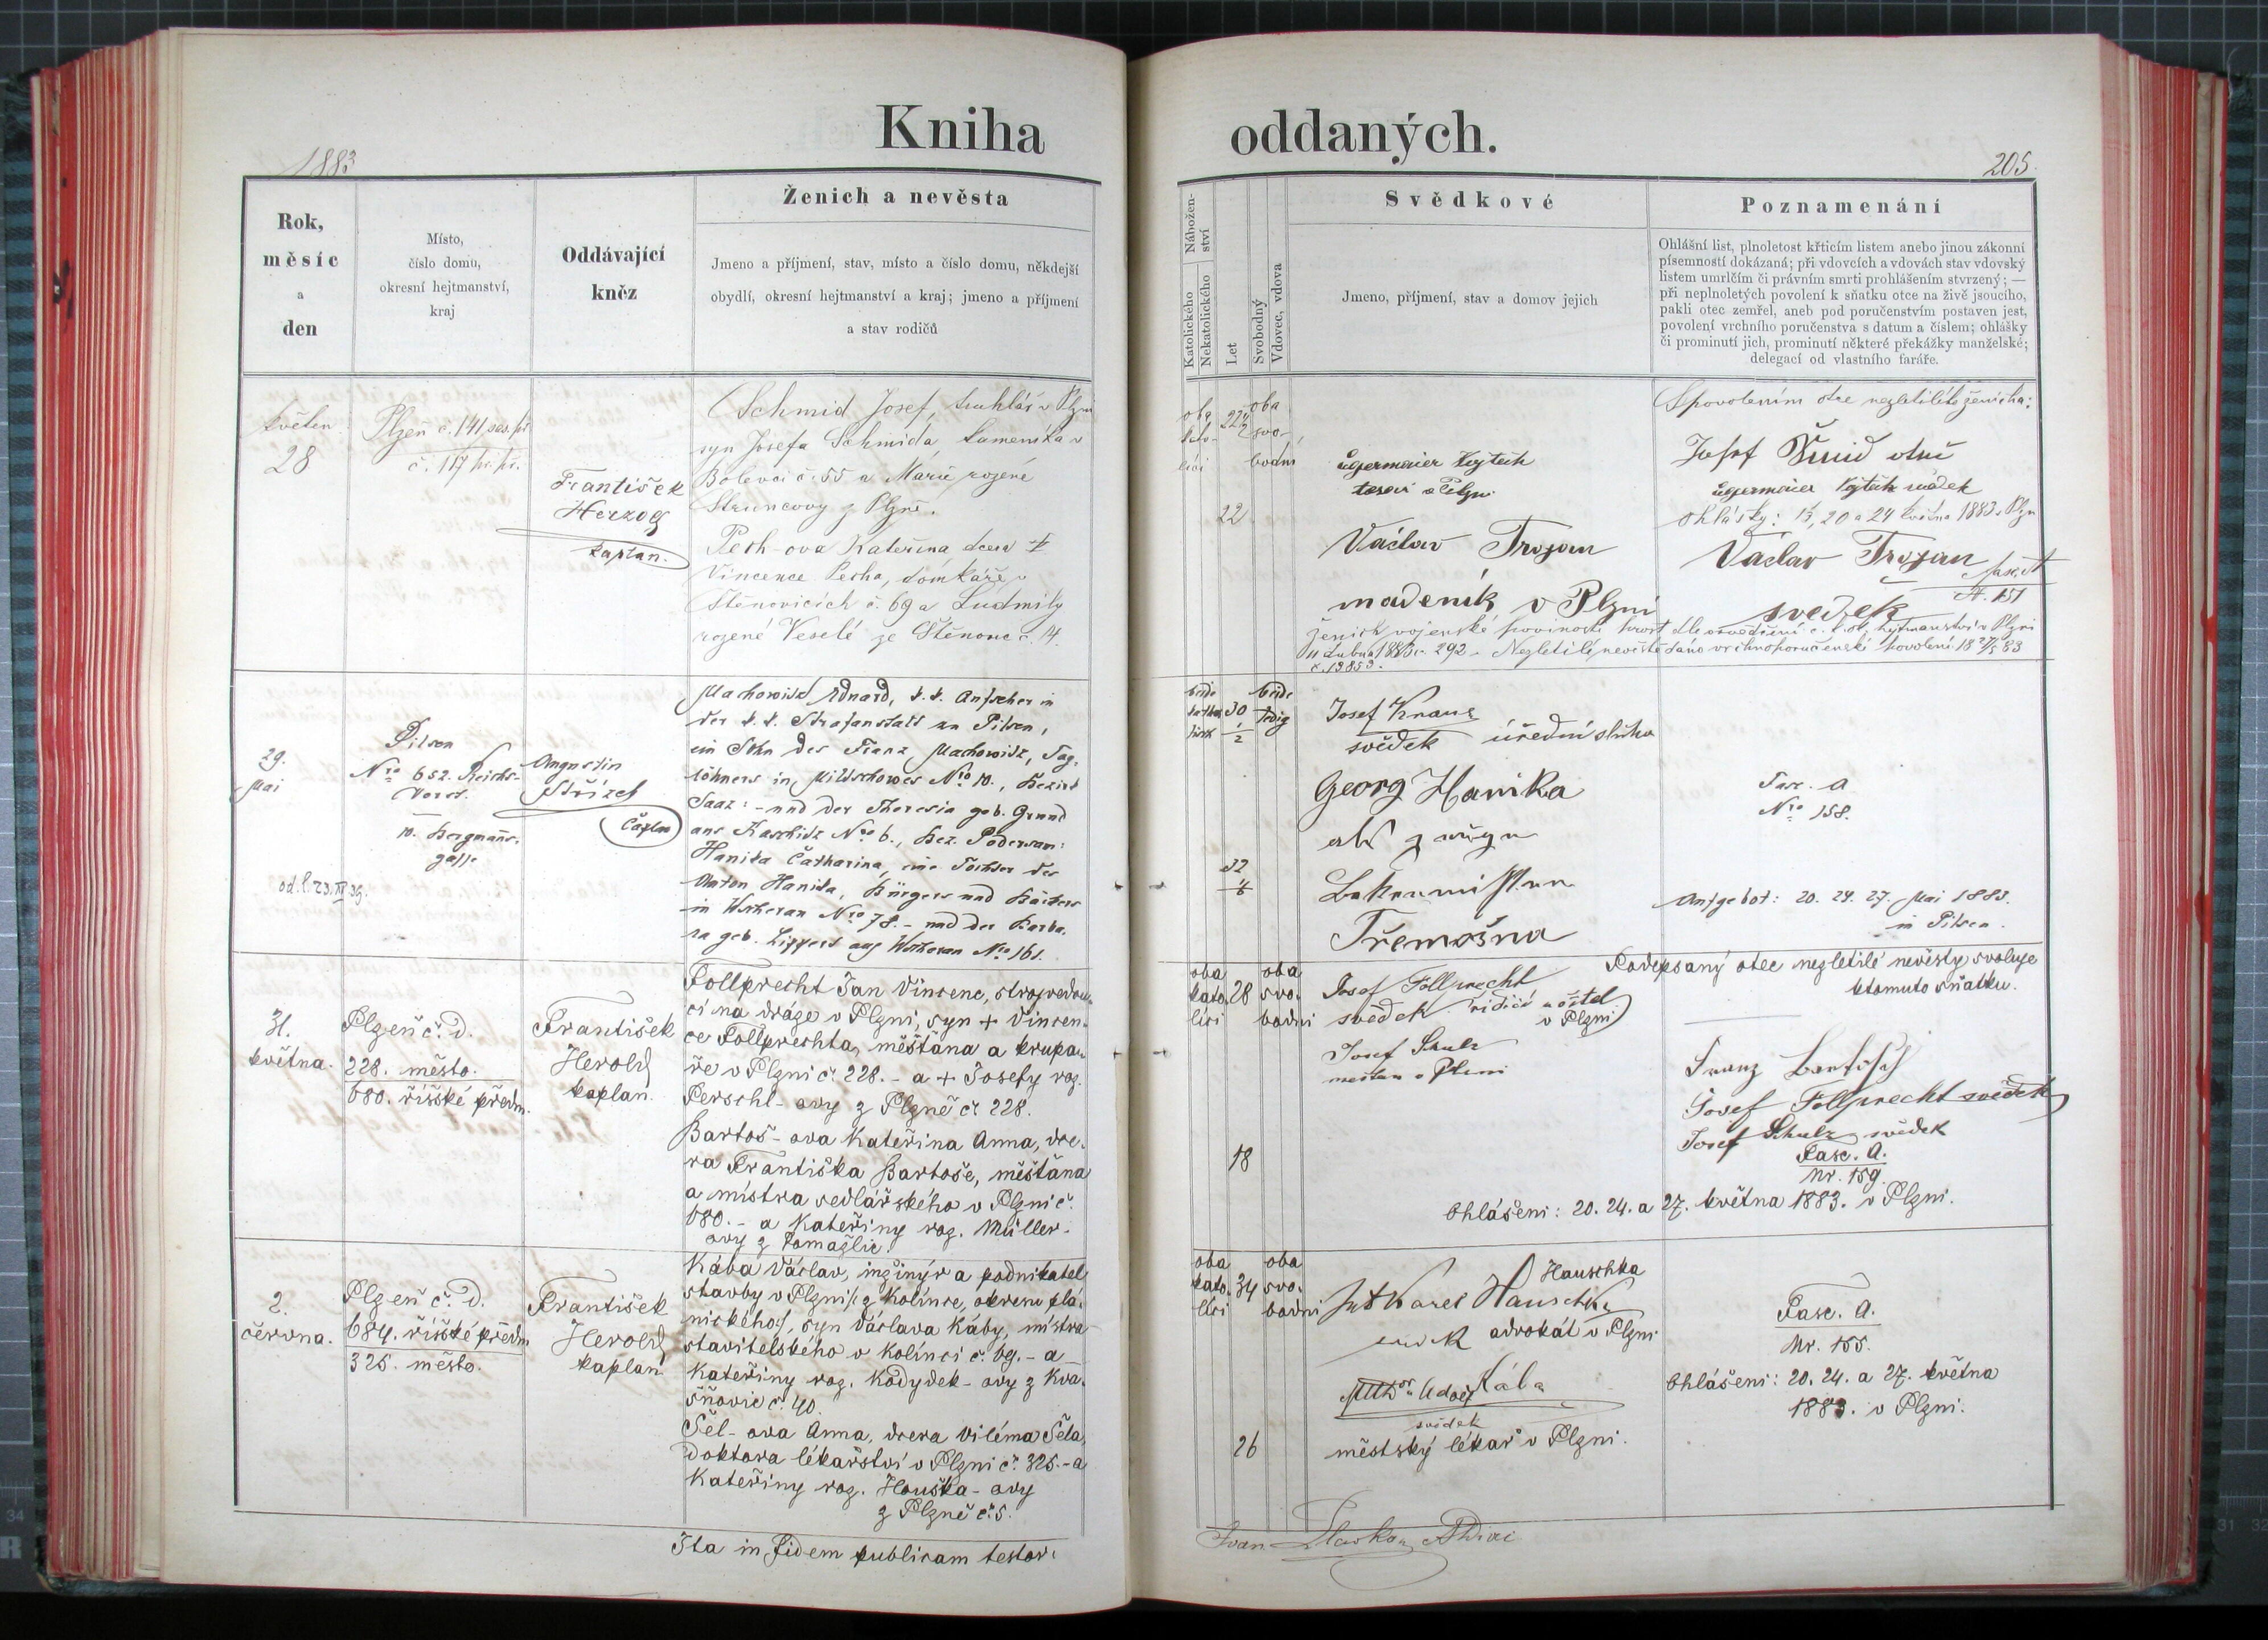 Kniha oddaných.
1883
205.
Rok,
měsíc
a
den
Místo,
číslo domu,
okresní hejtmanství,
kraj
Oddávající
kněz
Ženich a nevěsta
Jmeno a příjmení, stav, místo a číslo domu, někdejší
obydlí, okresní hejtmanství a kraj; jmeno a příjmení
a stav rodičů
Nábožen-
ství
Katolického
Nekatolického
Let
Svobodný
Vdovec, vdova
Svědkové
Jmeno, příjmení, stav a domov jejich
Poznamenání
Ohlášní list, plnoletost křticím listem anebo jinou zákonní
písemností dokázaná; při vdovcích a vdovách stav vdovský
listem umrlčím či právním smrti prohlášením stvrzený; —
při neplnoletých povolení k sňatku otce na živě jsoucího,
pakli otec zemřel, aneb pod poručenstvím postaven jest,
povolení vrchního poručenstva s datum a číslem; ohlášky
či prominutí jich, prominutí některé překážky manželské;
delegací od vlastního faráře.
květen
28
Plzeň č. 141
č. 117
František
Herzog
kaplan.
Schmid Josef, truhlář v Plzni
syn Josefa Schmida, kameníka v
Bolevci č. 55 a Marie rozené
Struncovy z Plzně.
Pech-ova Kateřina dcera †
Vincence Pecha, domkáře v
Štěnovicích č. 69 a Ludmily
rozené Veselé ze Štěnovic č. 14.
oba
kato-
líci
22
oba
svo-
bodni
22
Vojtěch
v Plzni
Václav Trojan
v Plzni
S povolením otce nezletilého ženicha:
Josef Šmid otec
Vojtěch svědek
Ohlášky: 13, 20 a 24 května 1883 v Plzni
Václav Trojan
svědek
Fasc. A
N. 157
č. 13853.
29.
Mai
Pilsen
Nro 652. Reichs-
Vorst.
10. Bergmanns-
gasse
od. l. 23. XI 39.
Augustin
Střízek
Caplan
Machowitz Eduard, k. k. Aufseher in
der k. k. Strafanstalt in Pilsen,
ein Sohn des Franz Machowitz, Tag-
löhners in Miltschowes Nro 10., Bezirk
Saaz: – und der Theresia geb. Grund
aus Kaschitz Nro 6., Bez. Podersam:
Hanika Catharina, eine Tochter des
Anton Hanika, Bürgers und Bäckers
in Wscherau Nro 78. – und der Barba-
ra geb. Lippert aus Wscherau Nro 161.
beide
katho-
lisch
30
1/2
beide
ledig
32
Josef Kraus
svědek úřední sluha
Georg Hanika
als Zeuge
Třemošna
Fasc. A
Nro 158.
Aufgebot: 20. 24. 27. Mai 1883.
in Pilsen.
31.
května.
Plzeň č. d.
228. město.
680. říšské předm.
František
Herold
kaplan.
Follprecht Jan Vincenc, strojvedou-
cí na dráze v Plzni, syn + Vincen-
ce Follprechta, měšťana a krupa-
ře v Plzni č. 228. – a + Josefy roz.
Perschl-ovy z Plzně č. 228.
Bartoš-ova Kateřina Anna, dce-
ra Františka Bartoše, měšťana
a mistra sedlářského v Plzni č.
680. – a Kateřiny roz. Müller-
ovy z Domažlic.
oba
kato-
líci
28
oba
svo-
bodni
18
Josef Follprecht
svědek řídící učitel
v Plzni
Josef Schulz
měšťan v Plzni
Podepsaný otec nezletilé nevěsty svoluje
k tomuto sňatku.
Franz Bartosch
Josef Follprecht svědek
Josef Schulz svědek
Fasc. A.
Nr. 159.
Ohlášení: 20. 24. a 27. května 1883. v Plzni.
2.
června.
Plzeň č. d.
684. říšské předm.
325. město.
František
Herold
kaplan
Kába Václav, inžinýr a podnikatel
stavby v Plzni /z Kolince, okresu pla-
nického/, syn Václava Káby, mistra
stavitelského v Kolinci č. 69. – a
Kateřiny roz. Kodydek-ovy z Kva-
šňovic č. 40.
Šel-ova Anna, dcera Viléma Šela,
doktora lékařství v Plzni č. 325. – a
Kateřiny roz. Houška-ovy
z Plzně č. 5.
oba
kato-
líci
34
oba
svo-
bodni
26
Hauschka
Karel Hauschka
advokát v Plzni
MUDr. Adolf Kába
svědek
městský lékař v Plzni.
Fasc. A.
Nr. 155.
Ohlášení: 20. 24. a 27. května
1883. v Plzni.
Ita in fidem publicam testor: